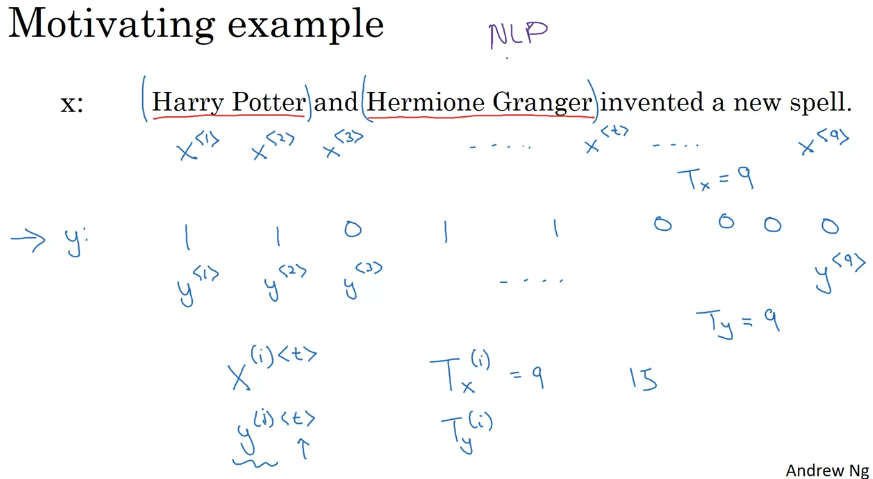 Motivating example
NLP
x: (Harry Potter) and (Hermione Granger) invented a new spell.
x<1> x<2> x<3> ..... x<t> .... x<9>
Tx = 9
→ y: 1 1 0 1 1 0 0 0 0
y<1> y<2> y<3> .... y<9>
Ty = 9
X(i)<t> Tx(i) = 9 15
y(i)<t> ↑ Ty(i)
Andrew Ng